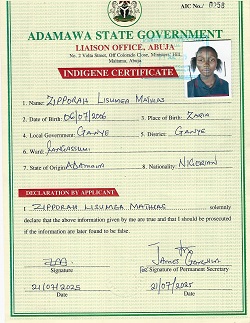 AIC No./ 0258
ADAMAWA STATE GOVERNMENT
LIAISON OFFICE, ABUJA
No. 2 Volta Street, Off Colorado Close, Ministers' Hill,
Maitama, Abuja
INDIGENE CERTIFICATE
1. Name: ZIPPORAH LISUMEA MATHIAS
2. Date of Birth: 06/07/2006 3. Place of Birth: ZARIA
4. Local Government: GANYE 5. District: GANYE
6. Ward:
7. State of Origin: ADAMAWA 8. Nationality: NIGERIAN
DECLARATION BY APPLICANT
I ZIPPORAH LISUMEA MATHIAS solemnly
declare that the above information given by me are true and that I should be prosecuted
if the information are later found to be false.
JAMES
Signature for Signature of Permanent Secretary
21/07/2025 21/07/2025
Date Date